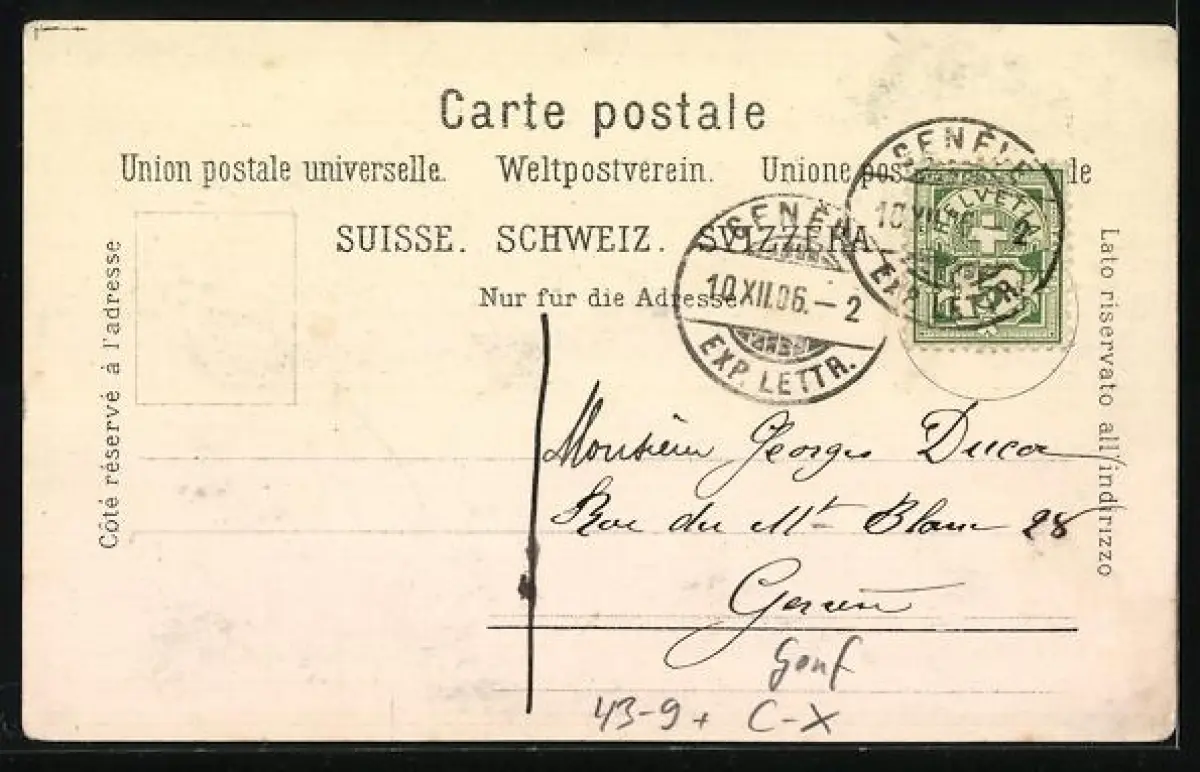 Carte postale
Union postale universelle. Weltpostverein. Unione pos le
SUISSE. SCHWEIZ. SVIZZERA
Nur für die Adresse
Côté réservé à l'adresse
Lato riservato all'indirizzo
GENÈVE
10.XII.06.-2
EXP. LETTR.
GENÈVE
10 XII -2
EXP. LETTR.
HELVETIA
Monsieur Georges
Rue du Mt Blanc 28
Genève
Genf
43-9+ C-X